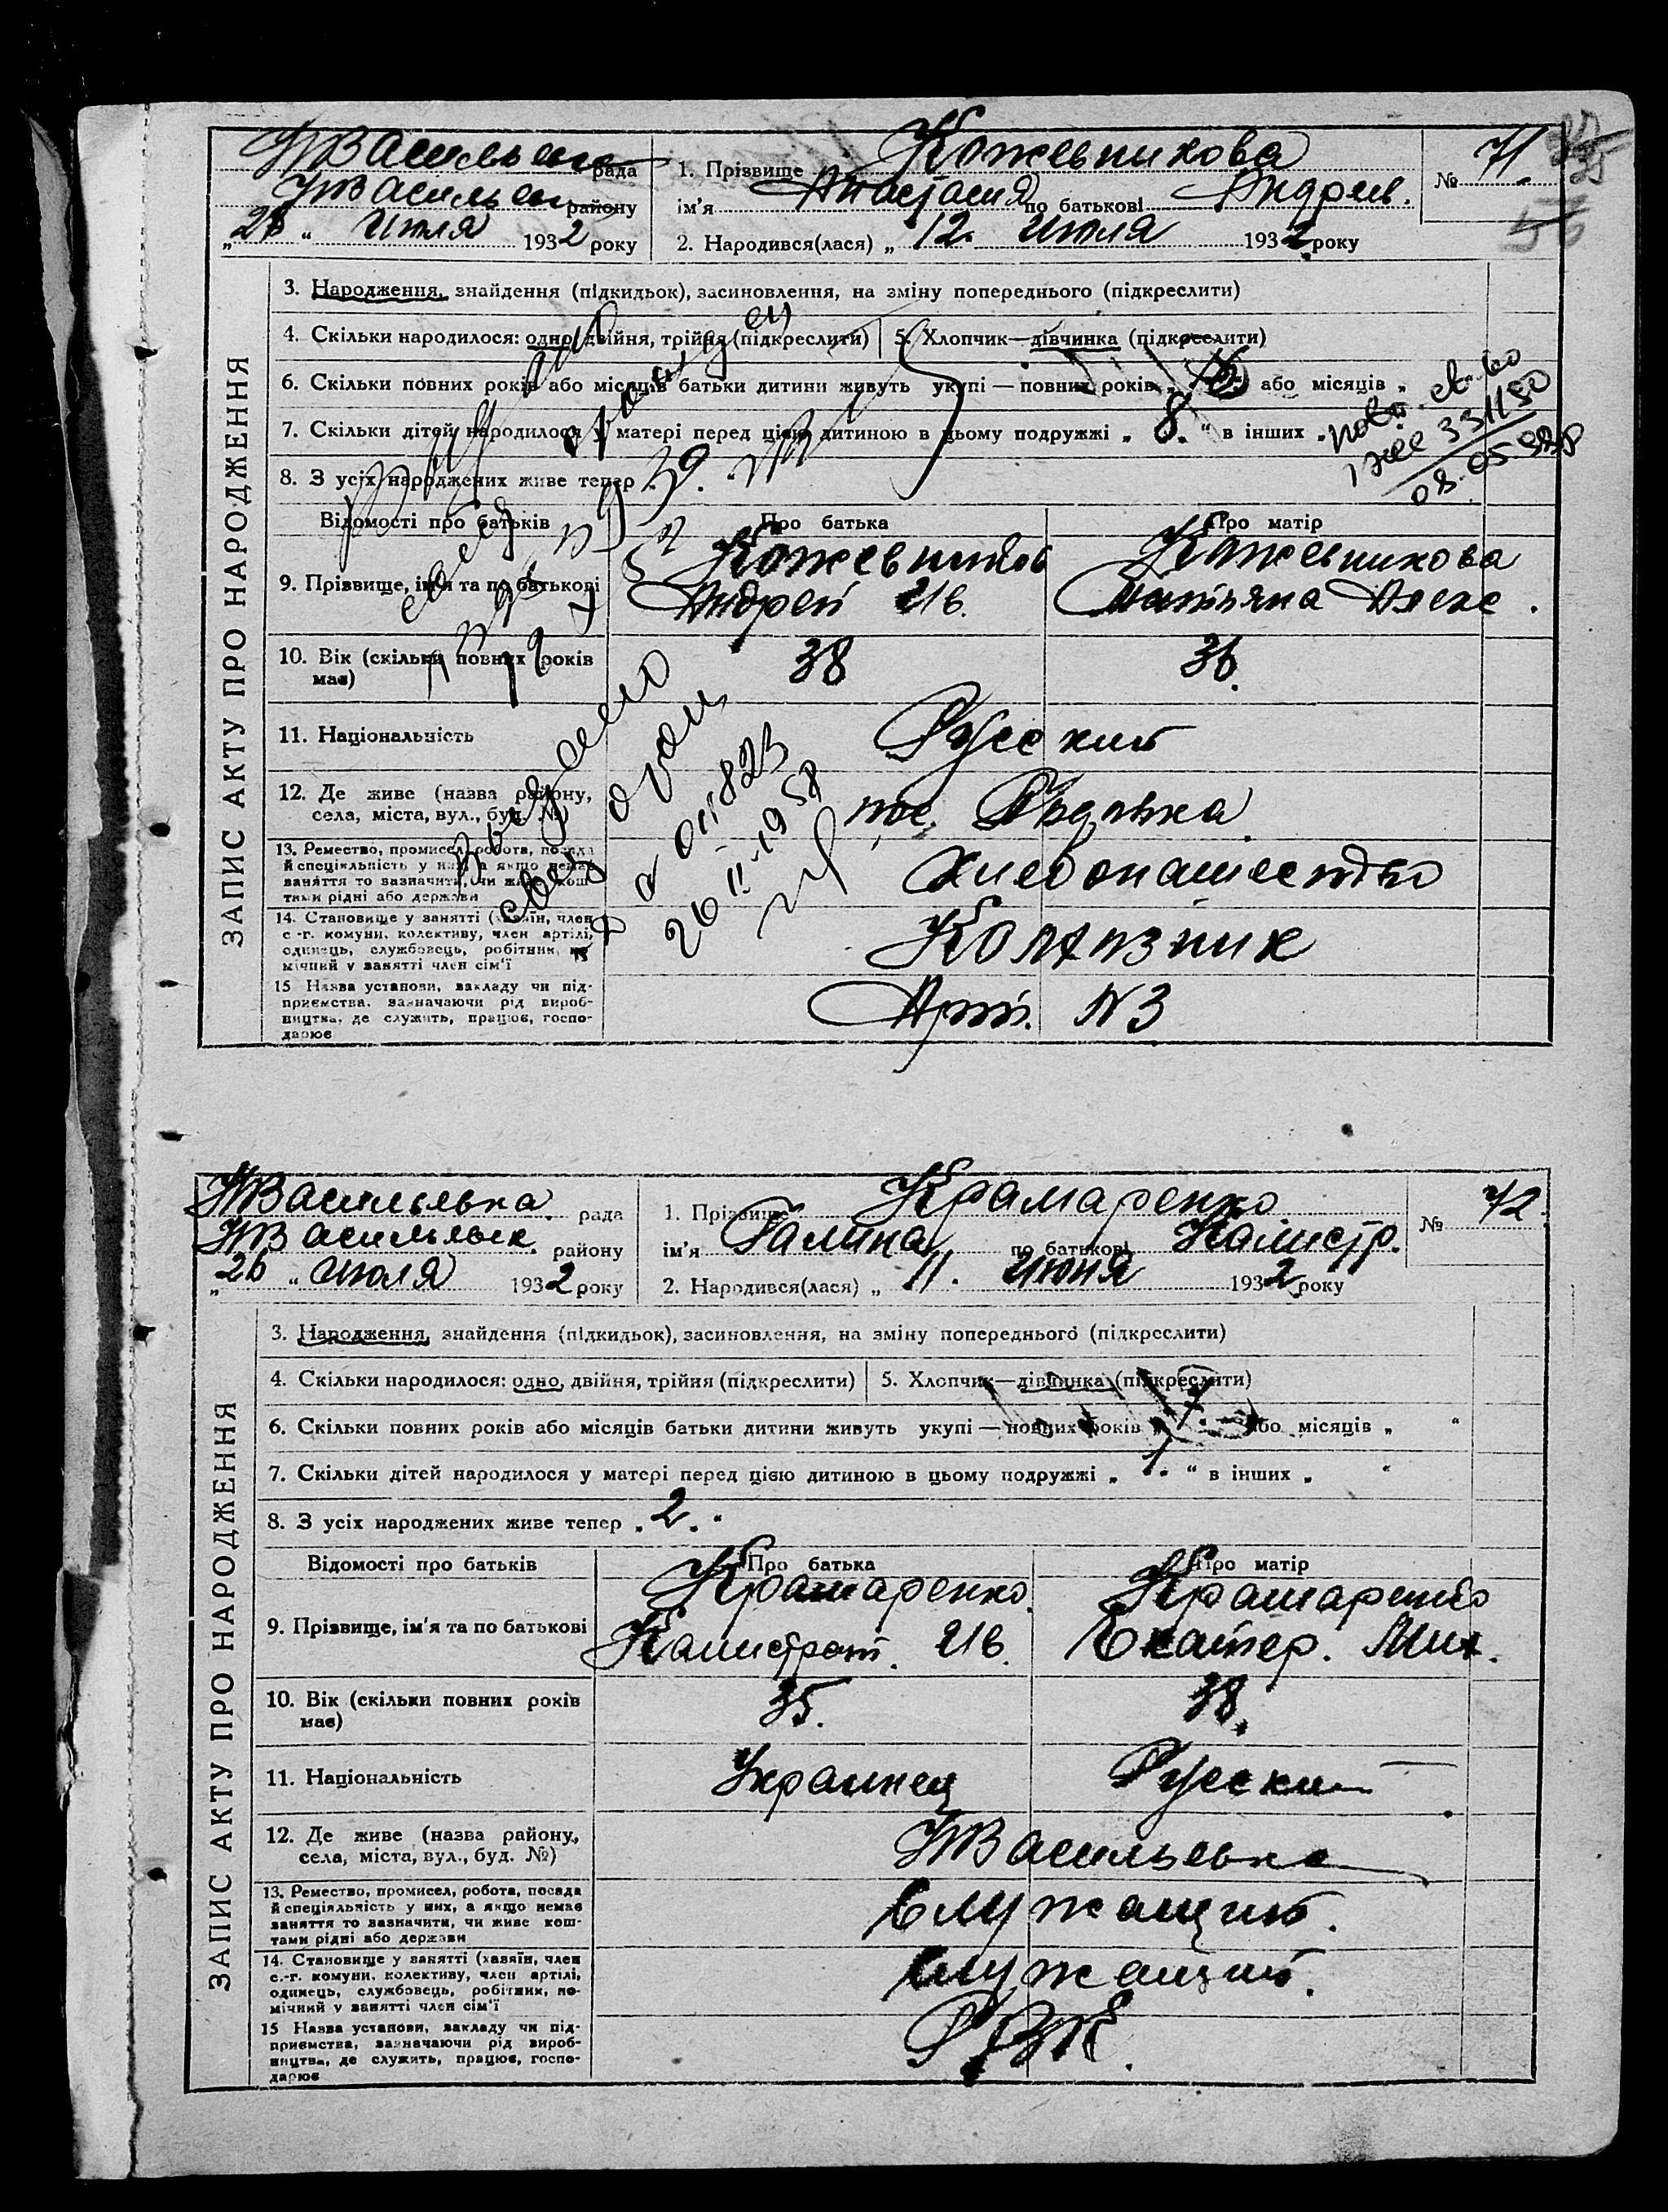 НВасильевс рада
НВасильев району
„26 “ Июля 1932 року
1. Прізвище Кожевникова
ім'я Анастасия по батькові Андреев.
2. Народився(лася) „ 12. Июля 1932 року
№ 71.
ЗАПИС АКТУ ПРО НАРОДЖЕННЯ
3. Народження, знайдення (підкидьок), засиновлення, на зміну попереднього (підкреслити)
4. Скільки народилося: одно, двійня, трійня (підкреслити)
5. Хлопчик—дівчинка (підкреслити)
6. Скільки повних років або місяців батьки дитини живуть укупі — повних років „ або місяців „
7. Скільки дітей народилося у матері перед цією дитиною в цьому подружжі „ 8. “ в інших „
8. З усіх народжених живе тепер
повт. св-во
1 же 331150
Відомості про батьків
Про батька
Про матір
9. Прізвище, ім'я та по батькові
Кожевников
Андрей Ив.
Кожевникова
Татьяна Алекс.
10. Вік (скільки повних років має)
38
36.
11. Національність
Русский
12. Де живе (назва району, села, міста, вул., буд. №)
пос. Редька
13. Ремество, промисел, робота, посада
й спеціяльність у них, а якщо немає
заняття то зазначити, чи живе кош-
тами рідні або держави
Хлебопашество
14. Становище у занятті (хазяїн, член
с.-г. комуни, колективу, член артілі,
одинець, службовець, робітник, по-
мічний у занятті член сім'ї
Колхозник
15 Назва установи, закладу чи під-
приємства, зазначаючи рід вироб-
ництва, де служить, працює, госпо-
дарює
Арт. N3
Выдано
26 II-1958
НВасильевка рада
НВасильевск. району
„26 “ июля 1932 року
1. Прізвище Крамаренко
ім'я Галина по батькові Калистр.
2. Народився(лася) „ 11. Июня 1932 року
№ 72.
ЗАПИС АКТУ ПРО НАРОДЖЕННЯ
3. Народження, знайдення (підкидьок), засиновлення, на зміну попереднього (підкреслити)
4. Скільки народилося: одно, двійня, трійня (підкреслити)
5. Хлопчик—дівчинка (підкреслити)
6. Скільки повних років або місяців батьки дитини живуть укупі — повних років „ 7. або місяців „ “
7. Скільки дітей народилося у матері перед цією дитиною в цьому подружжі „ 1. “ в інших „ “
8. З усіх народжених живе тепер „ 2. “
Відомості про батьків
Про батька
Про матір
9. Прізвище, ім'я та по батькові
Крамаренко
Калистрат. Ив.
Крамаренко
Екатер. Мих.
10. Вік (скільки повних років має)
35.
38.
11. Національність
Украинец
Русский
12. Де живе (назва району, села, міста, вул., буд. №)
НВасильевка
13. Ремество, промисел, робота, посада
й спеціяльність у них, а якщо немає
заняття то зазначити, чи живе кош-
тами рідні або держави
Служащий.
14. Становище у занятті (хазяїн, член
с.-г. комуни, колективу, член артілі,
одинець, службовець, робітник, по-
мічний у занятті член сім'ї
служащий.
15 Назва установи, закладу чи під-
приємства, зазначаючи рід вироб-
ництва, де служить, працює, госпо-
дарює
РВК.